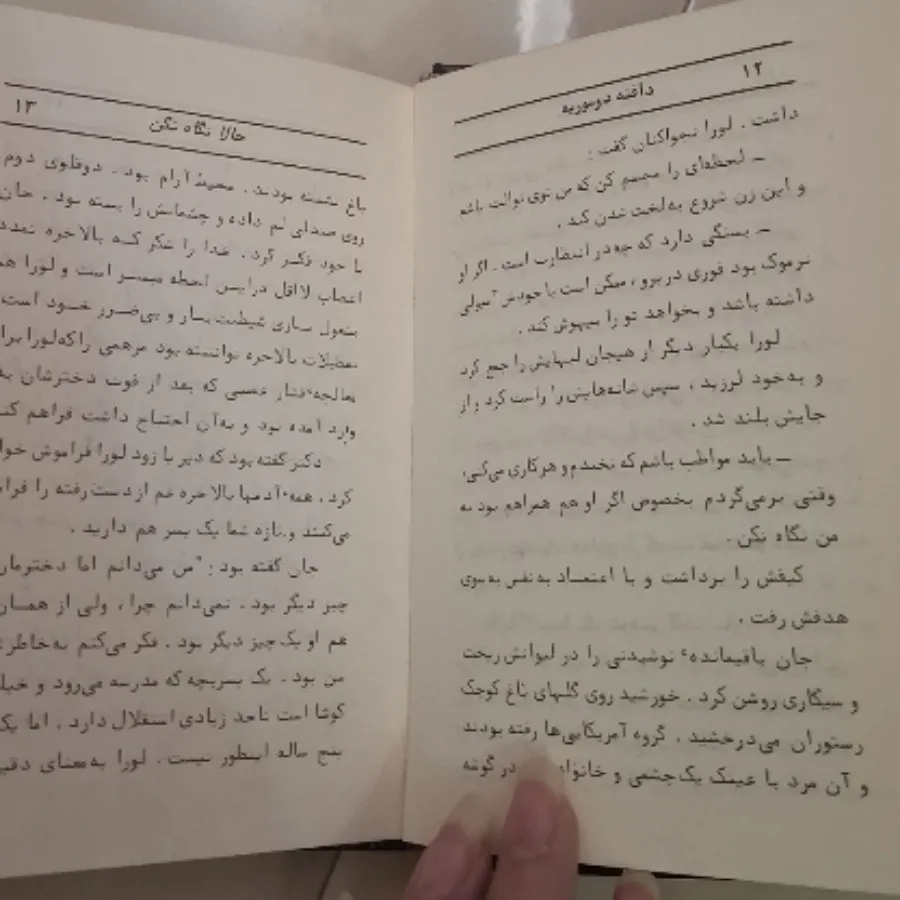 ۱۲
دافنه دوموریه
داشت . لورا نجواکنان گفت :
ــ لحظه‌ای را مجسم کن که من توی توالت باشم
و این زن شروع به لخت شدن کند .
ــ بستگی دارد که چه در انتظارت است . اگر او
نرموک بود فوری دربرو ، ممکن است با خودش آمپولی
داشته باشد و بخواهد تو را بیهوش کند .
لورا یکبار دیگر از هیجان لبهایش را جمع کرد
و به‌خود لرزید ، سپس شانه‌هایش را راست کرد و از
جایش بلند شد .
ــ باید مواظب باشم که نخندم و هرکاری می‌کنی،
وقتی برمی‌گردم بخصوص اگر او هم همراهم بود به
من نگاه نکن .
کیفش را برداشت و با اعتماد به نفس به سوی
هدفش رفت .
جان باقیماندهء نوشیدنی را در لیوانش ریخت
و سیگاری روشن کرد . خورشید روی گلهای باغ کوچک
رستوران می‌درخشید . گروه آمریکایی‌ها رفته بودند
و آن مرد با عینک یک‌چشمی و در گوشه
۱۳
حالا نگاه نکن
باغ نشسته بودند . محیط آرام بود . دوقلوی دوم
روی صندلی لم داده و چشمانش را بسته بود . جان
با خود فکر کرد . خدا را شکر کــه بالاخره
اعصاب لااقل در ایــن لحظه میســر است و لورا
مشغول بــازی شیطنت بــار و بی‌ضــرر خــود است
تعطیلات بالاخره توانسته بود مرهمی را که لورا برای
معالجهء فشار عصبی که بعد از فوت دخترشان
وارد آمده بود و به‌آن احتیاج داشت فراهم
دکتر گفته بود که دیر یا زود لورا فراموش
کرد . همهء آدمها بالاخره غم از دست رفته را
می‌کنند و تازه شما یک پسر هم دارید .
جان گفته بود : "من می‌دانم اما دخترمان
چیز دیگر بود . نمی‌دانم چرا ، ولی از همان
هم او یک چیز دیگر بود . فکر می‌کنم به‌خاطر
من بود . یک پسربچه که مدرسه می‌رود و
کوشا است تاحد زیادی استقلال دارد . اما یک
پنج ساله اینطور نیست . لورا به‌معنای